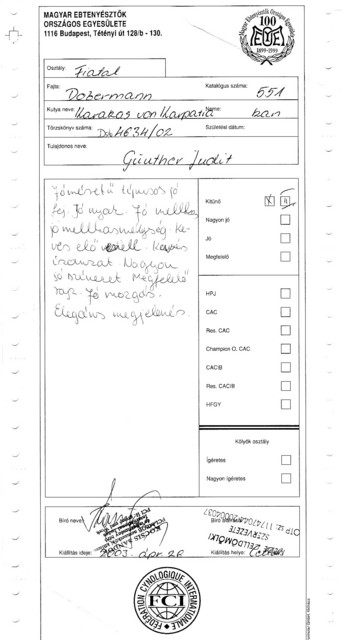 MAGYAR EBTENYÉSZTŐK
ORSZÁGOS EGYESÜLETE
1116 Budapest, Tétényi út 128/b - 130.
100
1899-1999
Osztály: Fiatal
Fajta: Dobermann
Katalógus száma: 551
Kutya neve: Karakas von Karpatia
Neme: kan
Törzskönyv száma: Dob 4634/02
Születési dátum:
Tulajdonos neve: Günther Judit
Jóméretű típusos jó
fej. Jó nyak. Jó mellkas
jó mellkasmélység. Ke-
vés elő mell. Kevés
Nagyon
jó színeret Megfelelő
rajz. Jó mozgás.
Elegáns megjelenés.
Kitűnő
Nagyon jó
Jó
Megfelelő
HPJ
CAC
Res. CAC
Champion O. CAC
CACIB
Res. CACIB
HFGY
Kölyök osztály
Ígéretes
Nagyon ígéretes
Bíró neve:
Bíró
Kiállítás ideje: 2003. ápr. 26
Kiállítás helye:
CELLDÖMÖLKI
SZERVEZETE
FÉDÉRATION CYNOLOGIQUE INTERNATIONALE
FCI